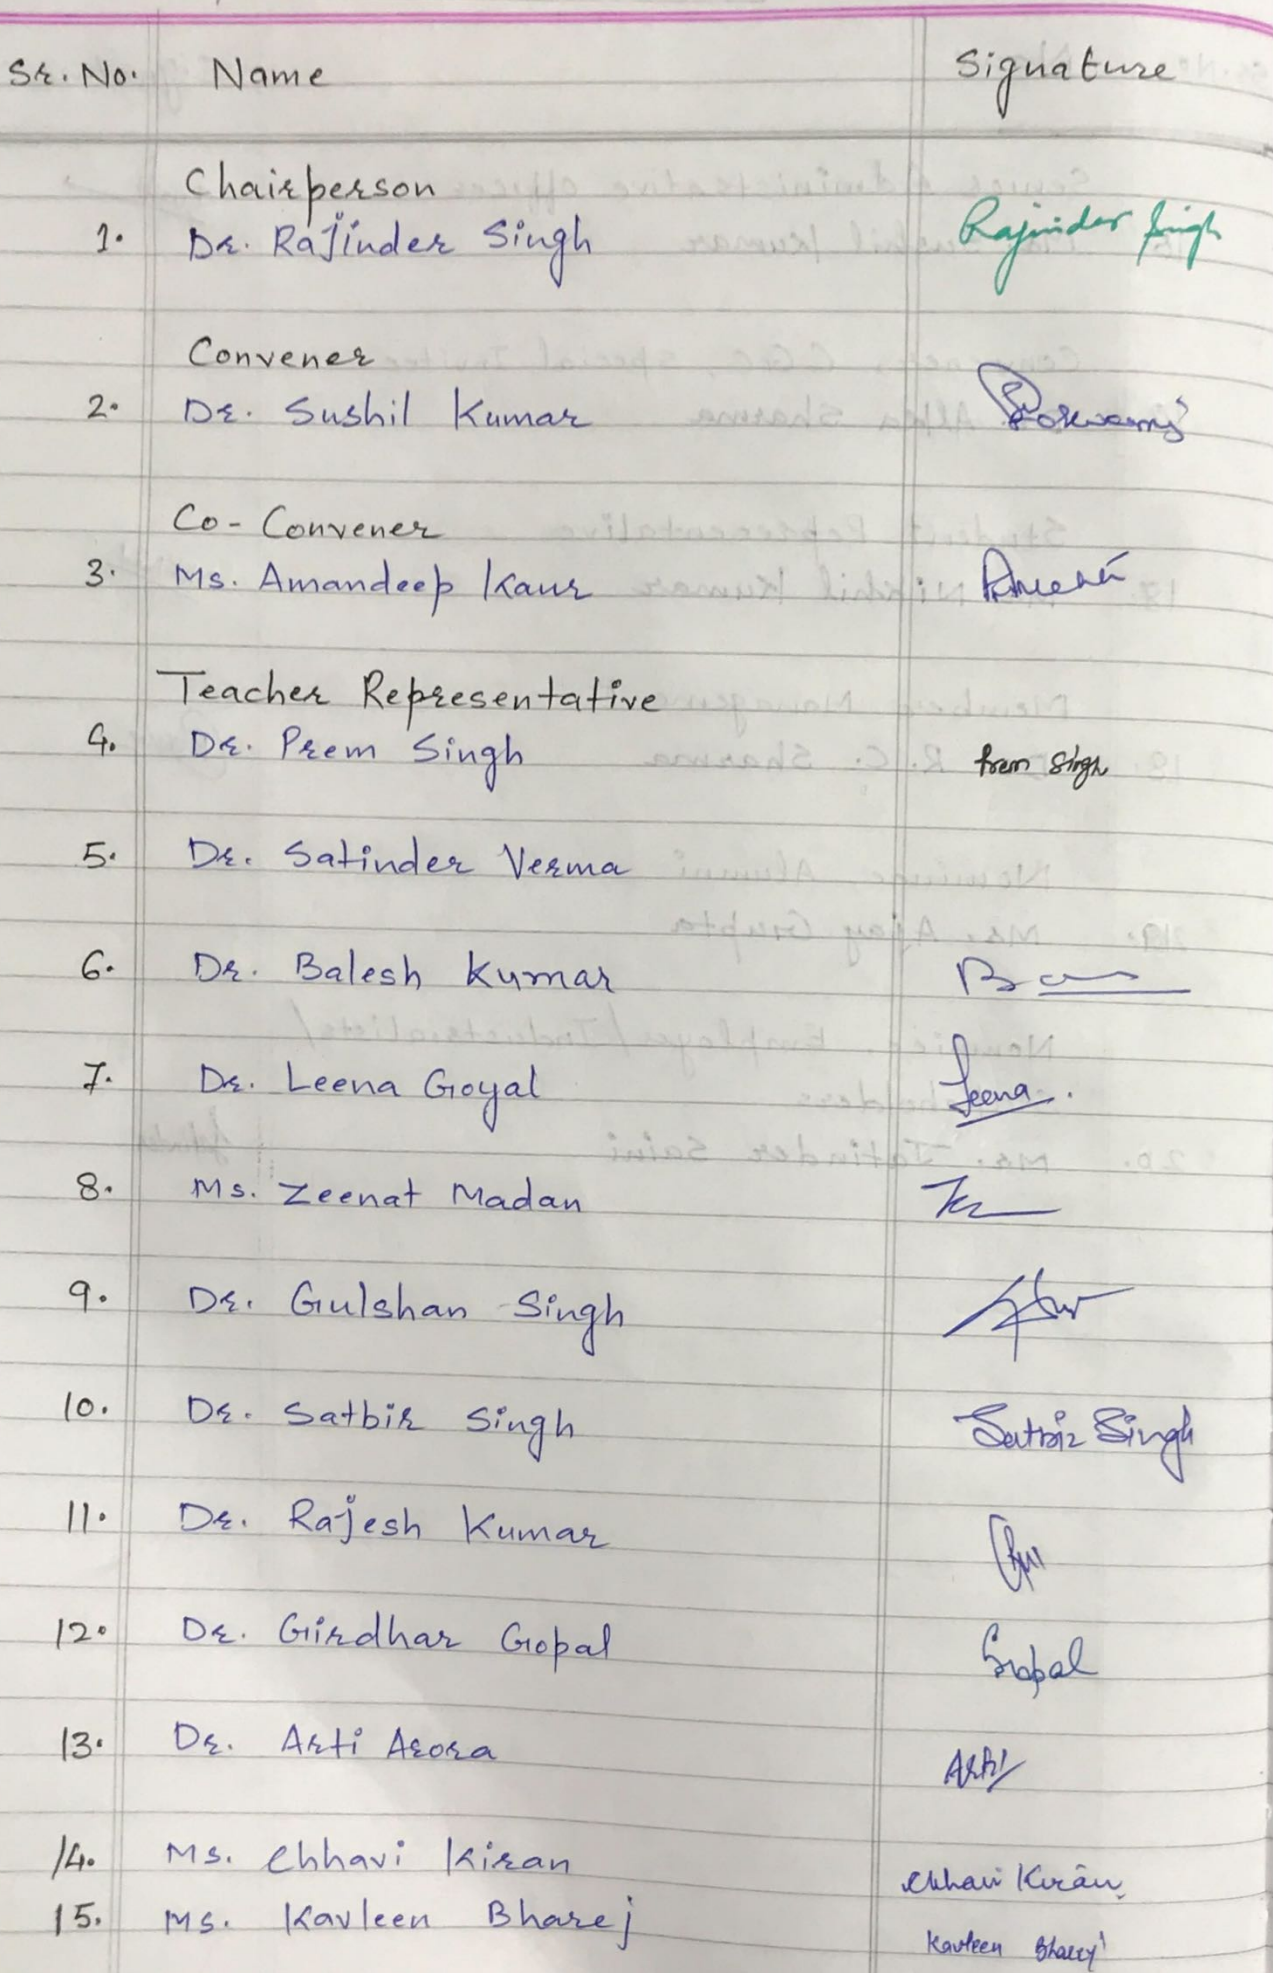 Sr. No. Name Signature
Chairperson
1. Dr. Rajinder Singh Rajinder Singh
Convener
2. Dr. Sushil Kumar
Co-Convener
3. Ms. Amandeep Kaur
Teacher Representative
4. Dr. Prem Singh Prem Singh
5. Dr. Satinder Verma
6. Dr. Balesh Kumar
7. Dr. Leena Goyal Leena.
8. Ms. Zeenat Madan
9. Dr. Gulshan Singh
10. Dr. Satbir Singh Satbir Singh
11. Dr. Rajesh Kumar
12. Dr. Girdhar Gopal Gopal
13. Dr. Arti Arora Arti
14. Ms. Chhavi Kiran Chhavi Kiran
15. Ms. Kavleen Bharej Kavleen Bharej